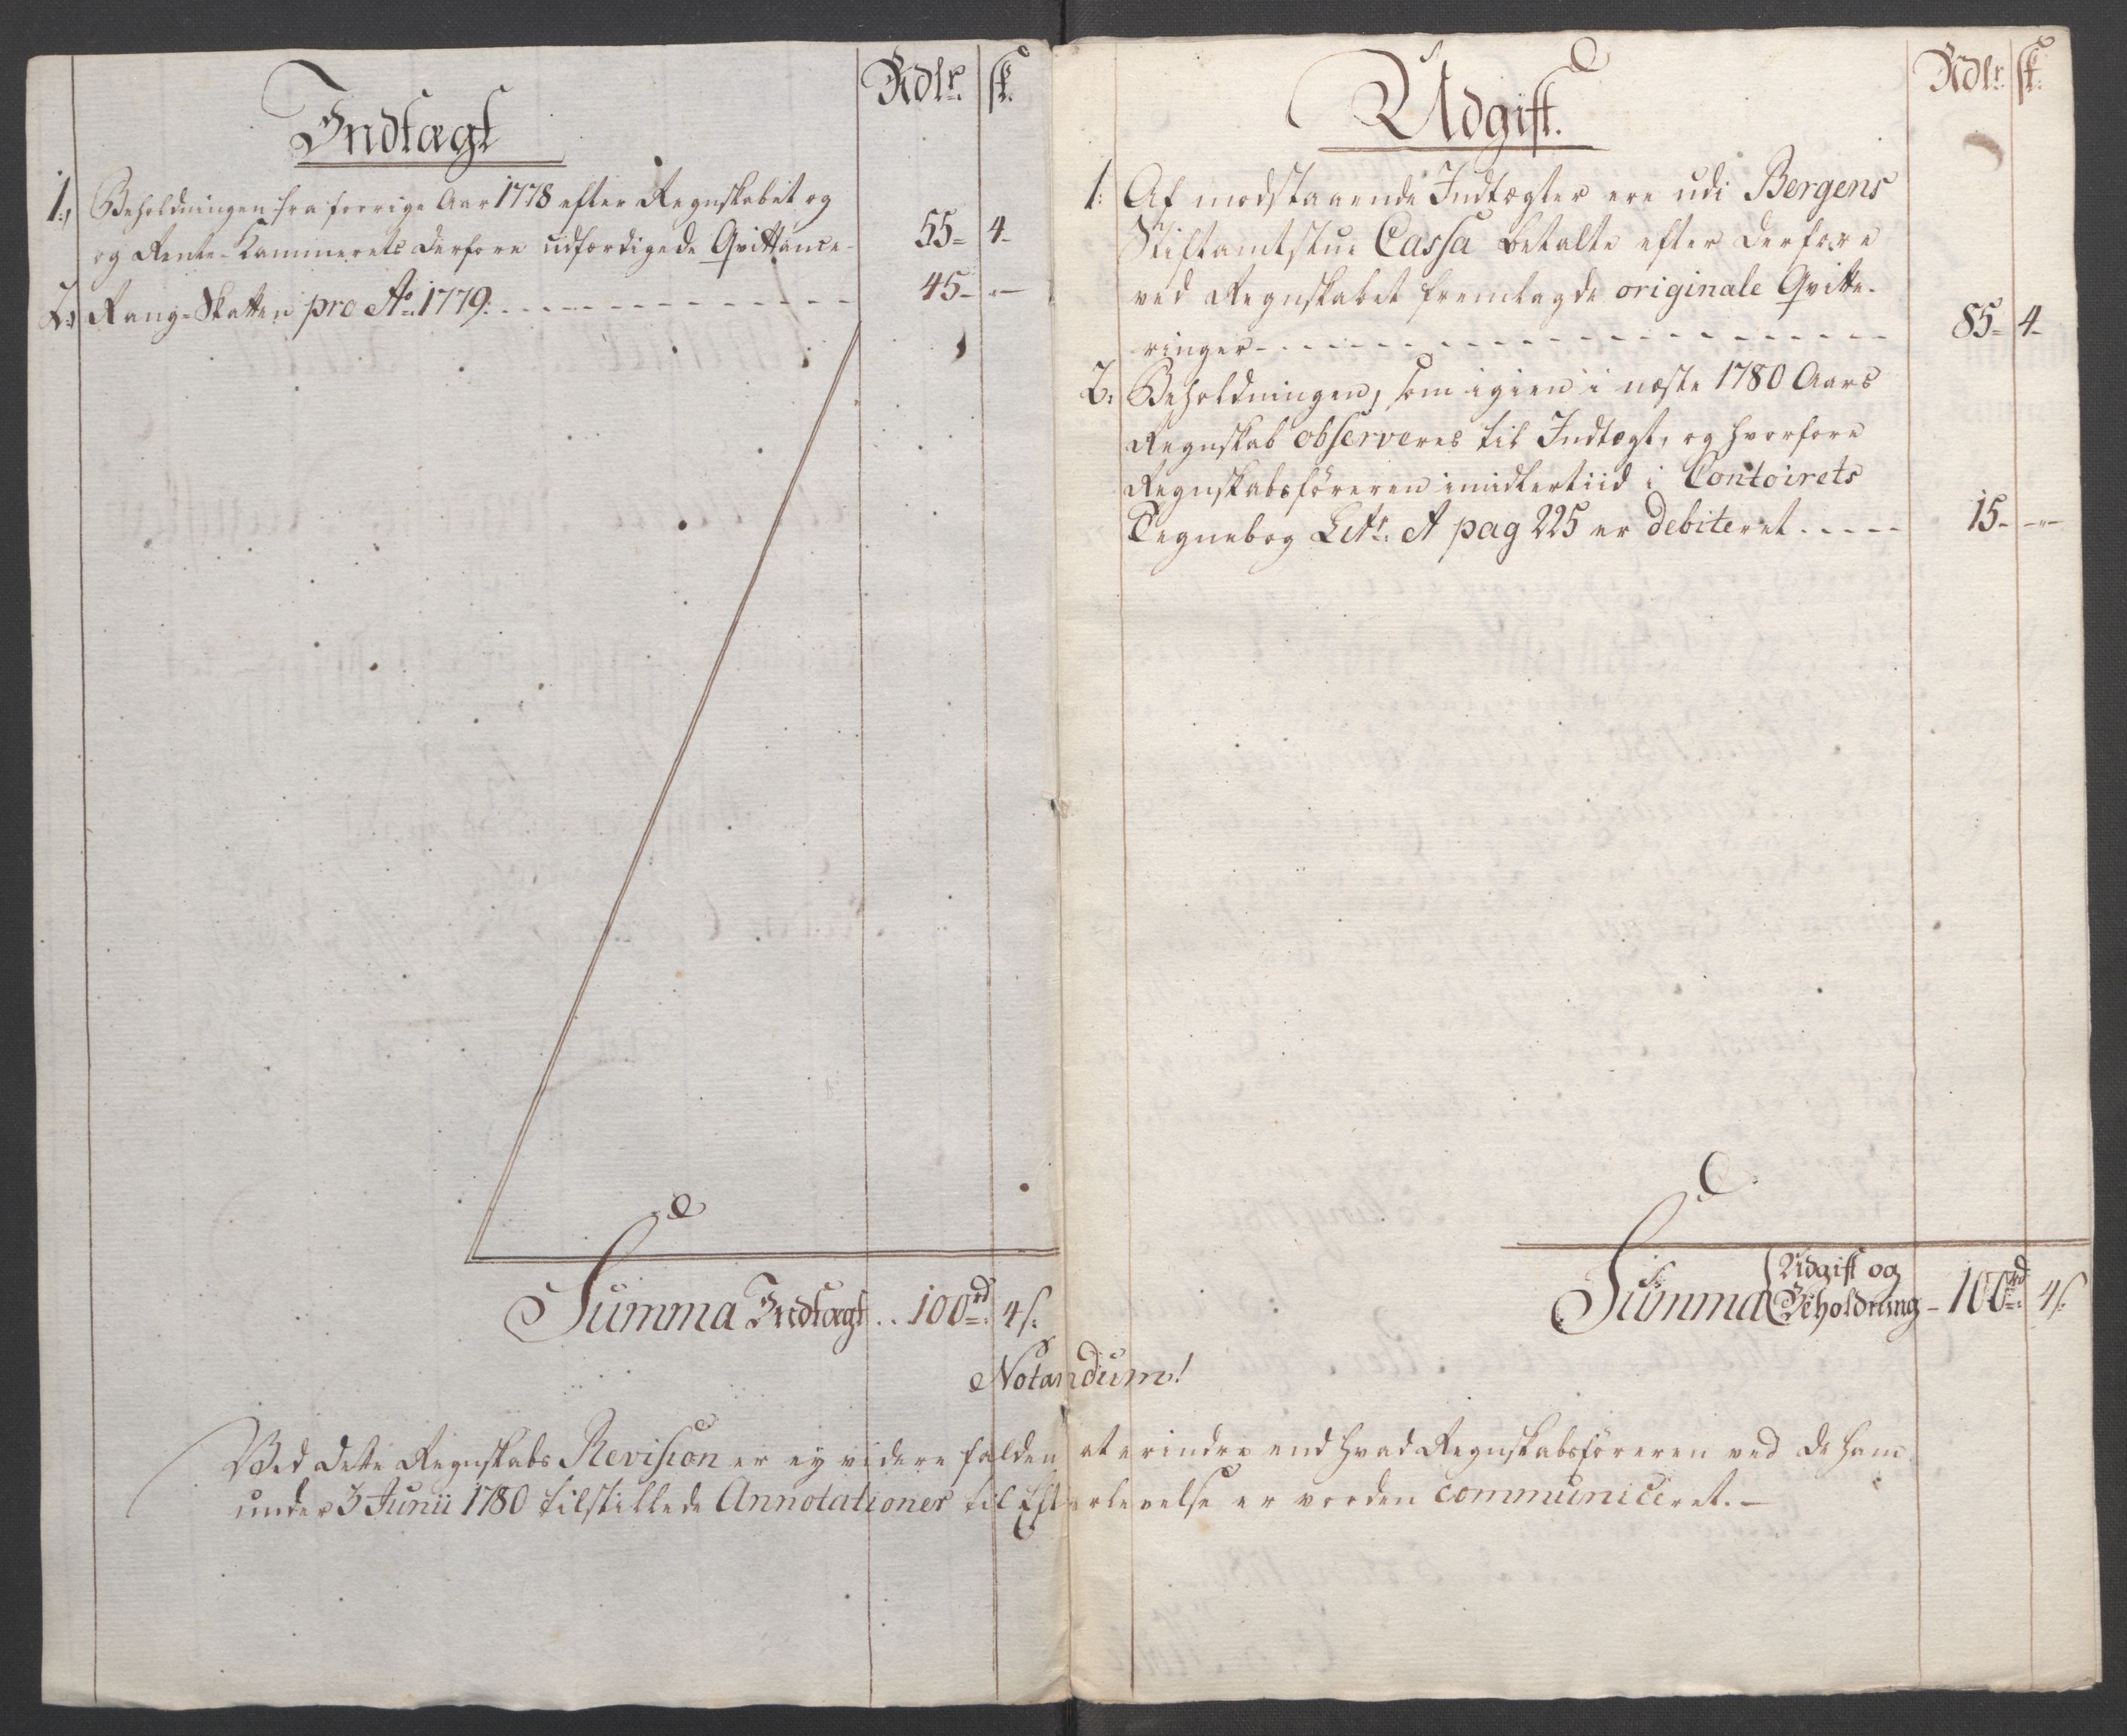 Indtægt
Rdlr. sk.
1., Beholdningen fra forrige Aar 1778 efter Regnskabet og
og Rente-Kammerets derfore udfærdigede Qvittance- 55- 4-
2., Rang-Skatten pro Ao. 1779. 45- -
Summa Indtægt .. 100rd. 4s.
Udgift.
Rdlr. sk.
1. Af modstaaende Indtægter ere udi Bergens
Stiftamtstue Cassa betalte efter derfore
ved Regnskabet fremlagde originale Qvitte-
ringer 85- 4-
2. Beholdningen, som igien i næste 1780 Aars
Regnskab observeres til Indtægt, og hvorfore
Regnskabsföreren imidlertiid i Contoirets
Tegnebog Litr. A pag 225 er debiteret 15- -
Summa Udgift og
Beholdning - 100rd. 4s.
Notandum!
Ved dette Regnskabs Revision er ey videre falden at erindre end hvad Regnskabsföreren ved de ham
under 3 Junii 1780 tilstillede Annotationer til Efterlevelse er vorden communiceret.-